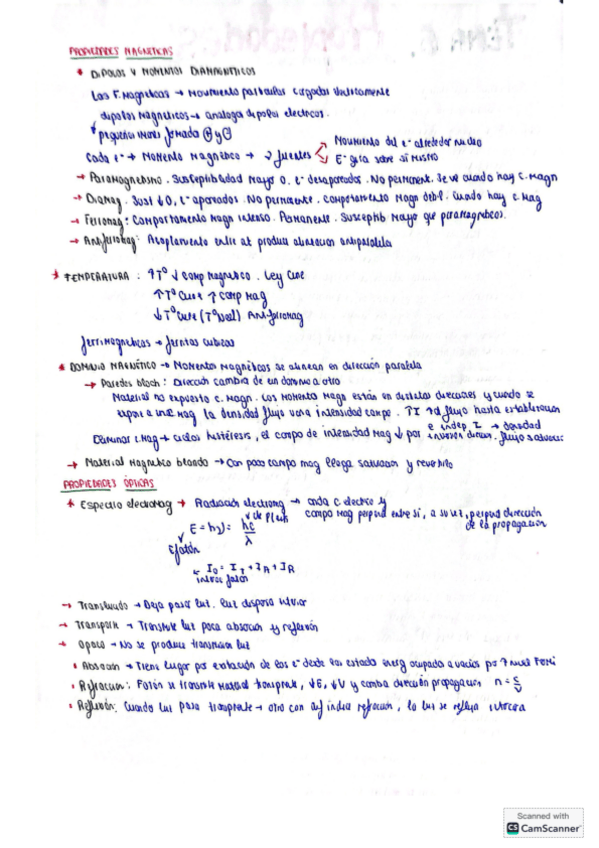 PROPIEDADES MAGNETICAS
* DIPOLOS Y MOMENTOS DIAMAGNETICOS
Las F. Magneticas → Movimiento particulas cargadas electricamente
dipolos magneticos → analogos dipolos electricos.
pequeños imanes formada + y -
Cada e⁻ → Momento Magnético → 2 fuentes
Movimiento del e⁻ alrededor nucleo
E⁻ gira sobre si mismo
→ Paramagnetismo. Susceptibilidad Mayor 0. e⁻ desapareados. No permanent. Se ve cuando hay c. Magn
→ Diamag. Sust ↓ 0, e⁻ apareados. No permanente. comportamiento Magn debil. Cuando hay c. Mag
→ Ferromag: Comportamiento Magn intenso. Permanente. Susceptib Mayor que paramagneticos.
→ Antiferromag: Acoplamiento entre at produce alineacion antiparalela
* TEMPERATURA: ↑Tº ↓ comp magnetico. Ley Curie
↑Tº Curie ↑ comp Mag
↓Tº Curie (Tº Neel) Antiferromag
ferrimagneticos → ferritas cubicas
* DOMINIO MAGNÉTICO → Momentos Magnéticos se alinean en dirección paralela
→ Paredes bloch: Dirección cambia de un dominio a otro
Material no expuesto c. Magn. Los momento Magn están en distintas direcciones y cuando se
expone a un c. Mag la densidad flujo varia intensidad campo. ↑I ↑d flujo hasta
Eliminar c. Mag → ciclos histéresis, el campo de intensidad Mag ↓ por
e indep I → densidad
inversión flujo
→ Material Magnetico blando → Con poco campo mag llega saturacion y reversible
PROPIEDADES ÓPTICAS
* Espectro electromag → Radiación electromg → onda c. electrico y
campo Mag perpend entre si, a su vez, perpend dirección
de la propagación
cte de Planck
E = hν = hc/λ
E fotón
I₀ = I_T + I_A + I_R
→ Translucido → Deja pasar luz. Luz dispersa interior
→ Transparente → Transmite luz poca absorcion y reflexión
→ Opaco → No se produce transmision luz
• Absorción → Tiene lugar por exitación de los e⁻ desde los estados energ ocupados a vacios por ↑ nivel Fermi
• Refraccion: Fotón se transmite material transparente, ↓E, ↓V y cambia dirección propagacion n = c/v
• Reflexión: Cuando luz pasa transparente → otro con dif indice refracción, la luz se refleja interfaz
Scanned with
CS CamScanner